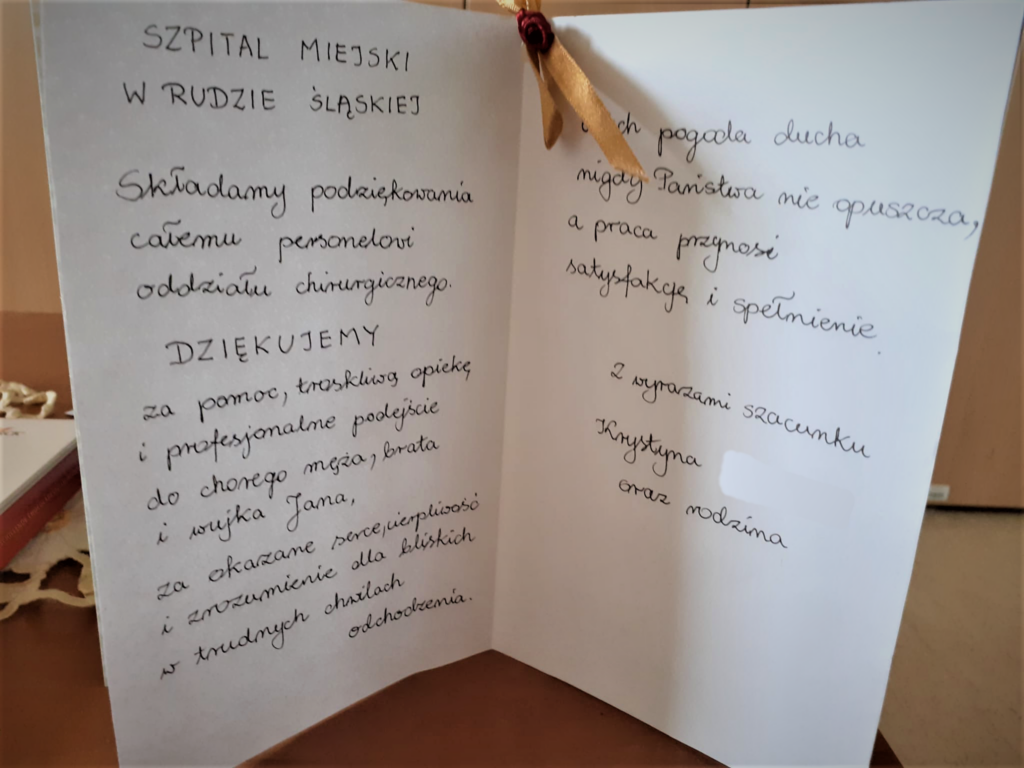 SZPITAL MIEJSKI
W RUDZIE ŚLĄSKIEJ
Składamy podziękowania
całemu personelowi
oddziału chirurgicznego.
DZIĘKUJEMY
za pomoc, troskliwą opiekę
i profesjonalne podejście
do chorego męża, brata
i wujka Jana,
za okazane serce, cierpliwość
i zrozumienie dla bliskich
w trudnych chwilach
odchodzenia.
pogoda ducha
nigdy Państwa nie opuszcza,
a praca przynosi
satysfakcję i spełnienie.
Z wyrazami szacunku
Krystyna
oraz rodzina